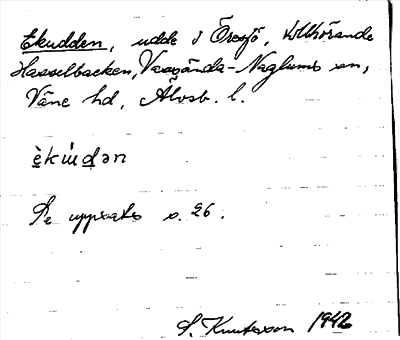 Ekudden, udde i Öresjö, tillhörande
Hasselbacken, Vassända-Naglums sn,
Väne hd, Älvsb. l.
èkúdən
Se uppsats s. 26.
S. Knutsson 1942